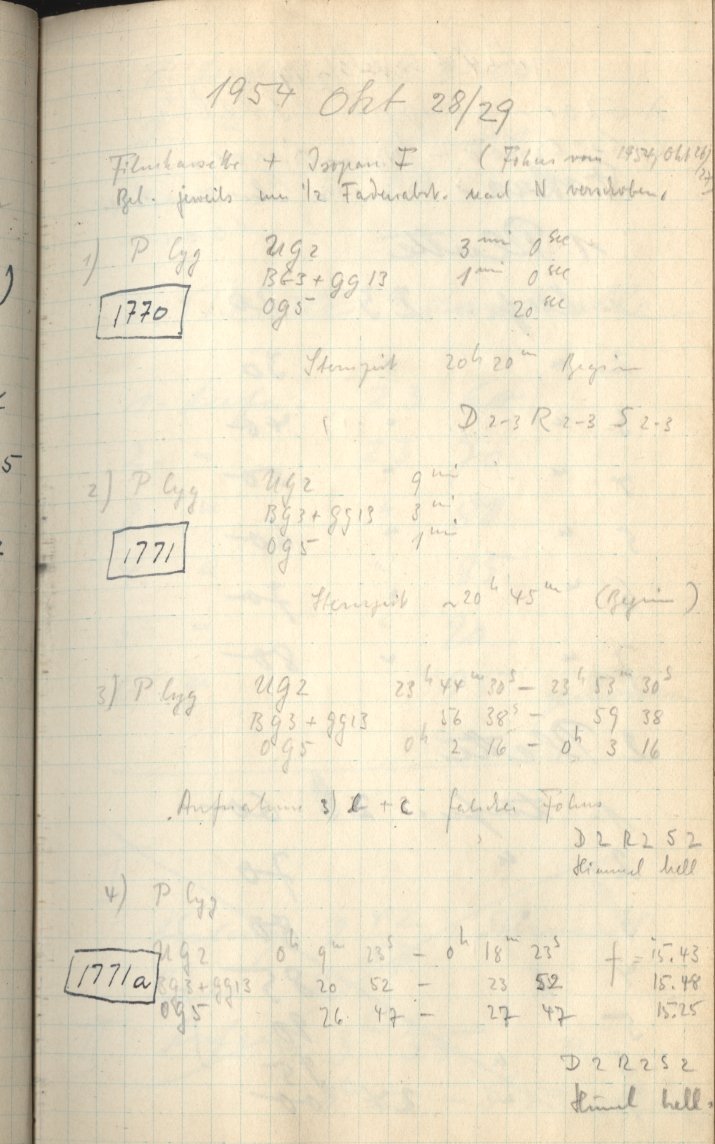 1954 Okt 28/29
Filmkassette + Isopan F (Fokus vom 1954, Okt 26/27)
Bel. jeweils um 1/2 Fadenabst. nach N verschoben.
1) P Cyg UG2 3 min 0 sec
BG3 + GG13 1 min 0 sec
1770 OG5 20 sec
Sternzeit 20h 20m Beginn
D 2-3 R 2-3 S 2-3
2) P Cyg UG2 9 min
BG3 + GG13 3 min
1771 OG5 1 min
Sternzeit ~20h 45m (Beginn)
3) P Cyg UG2 23h 44m 30s – 23h 53m 30s
BG3 + GG13 56 38s – 59 38
OG5 0h 2 16 – 0h 3 16
Aufnahme 3) b + c falscher Fokus
D 2 R 2 S 2
Himmel hell
4) P Cyg
UG2 0h 9m 23s – 0h 18m 23s f = 15.43
1771a BG3 + GG13 20 52 – 23 52 15.48
OG5 26 47 – 27 47 15.25
D 2 R 2 S 2
Himmel hell.